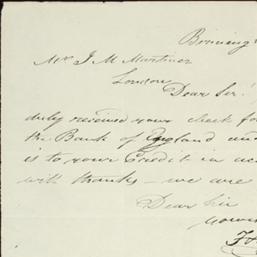 Mr J M Martiner
London
Dear Ser!
duly received your check for
the Bank of England
is to your Credit in
with thanks – we are
Dear Sir